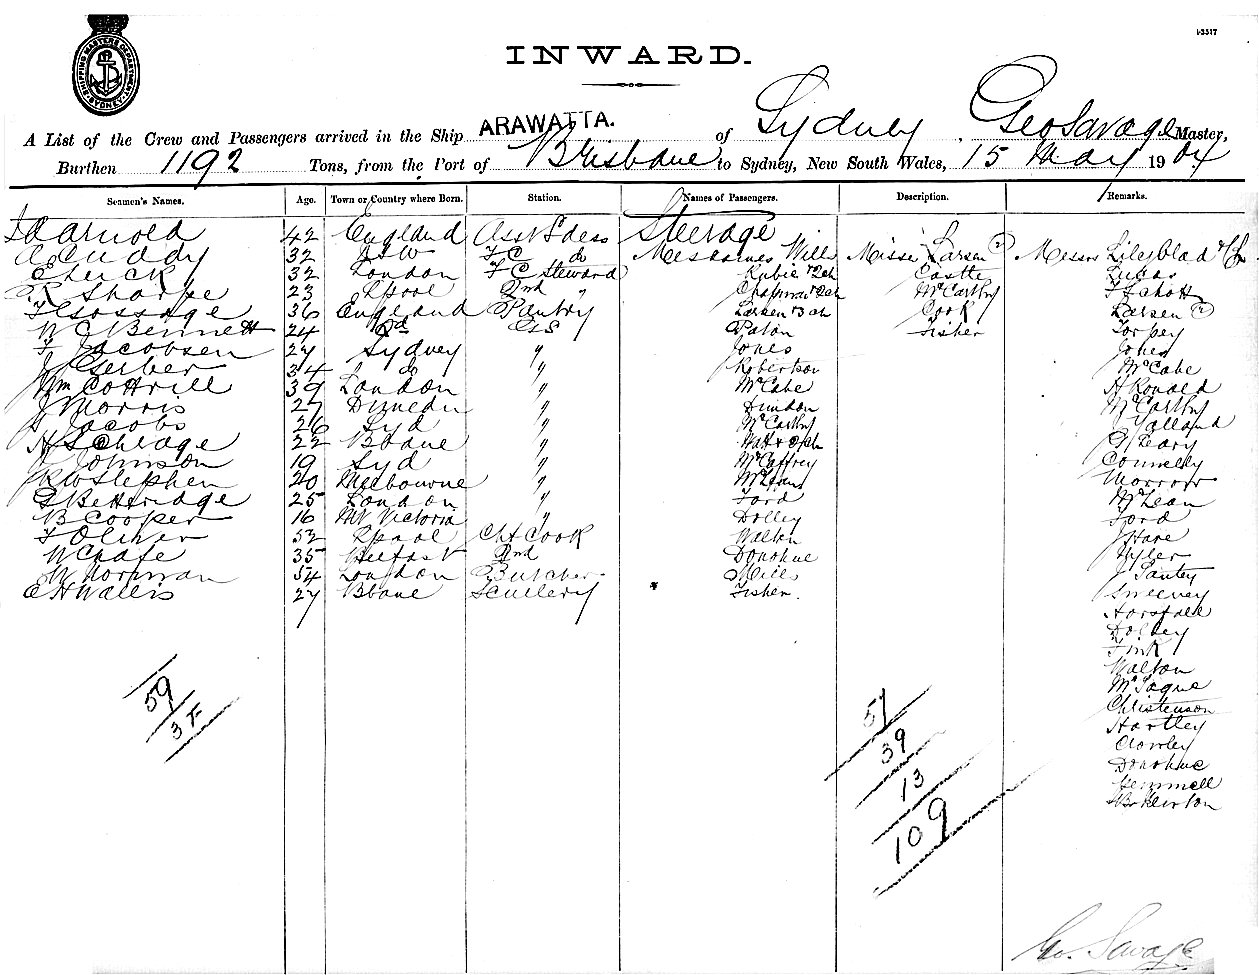 13517
SHIPPING MASTERS DEPARTMENT SYDNEY
INWARD.
A List of the Crew and Passengers arrived in the Ship ARAWATTA. of Sydney Geo Savage Master,
Burthen 1192 Tons, from the Port of Brisbane to Sydney, New South Wales, 15 May 1904
Seamen's Names. Age. Town or Country where Born. Station. Names of Passengers. Description. Remarks.
Arnold 42 England Asst Sdess Steerage
A Cuddy 32 NSW F C do Mesdames Mills Misses Larsen (2) Messrs Lileyblad
E herick 32 London F C Steward Rubie + 2ch Castle Lucas
R Sharpe 23 Lpool 2nd " Chapman + 2ch McCarthy
F Gossage 36 England Pantry Larsen + 3ch Cook Larsen (2)
W C Bennett 24 do G S Paton Fisher Torpey
F Jacobsen 27 Sydney " Jones Jones
J Gerber 34 do " Robertson McCabe
Wm Cottrill 39 London " McCabe A Ronald
J Morris 27 Dunedin " Dundon McCarthy
S Jacobs 26 Syd " McCarthy Yalland
H Schlage 22 Bbane " Watt + 2ch G Leary
J Johnson 19 Syd " McCaffrey Connelly
R W Stephen 20 Melbourne " Morrow
G Bettridge 25 London " Ford McLean
B Cooper 16 Mt Victoria " Dolley Ford
F Oliver 52 Lpool Cht Cook Walton J Hare
W Chafe 35 Belfast 2nd Donohue Tyler
W Norman 54 London Butcher Mills J Santey
E H Wallis 27 Bbane Scullery Fisher. Sweeney
Horsfall
Dolley
Fink
Walton
McTague
Christenson
Hartley
Crowley
Donohue
Gemmell
59
57
39
13
109
Geo. Savage